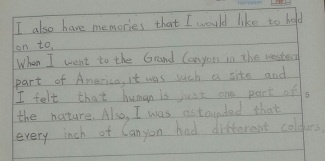 I also have memories that I would like to hold
on to.
When I went to the Grand Canyon in the western
part of America, it was such a site and
I felt that human is just one part of
the nature. Also, I was astounded that
every inch of Canyon had different colours.